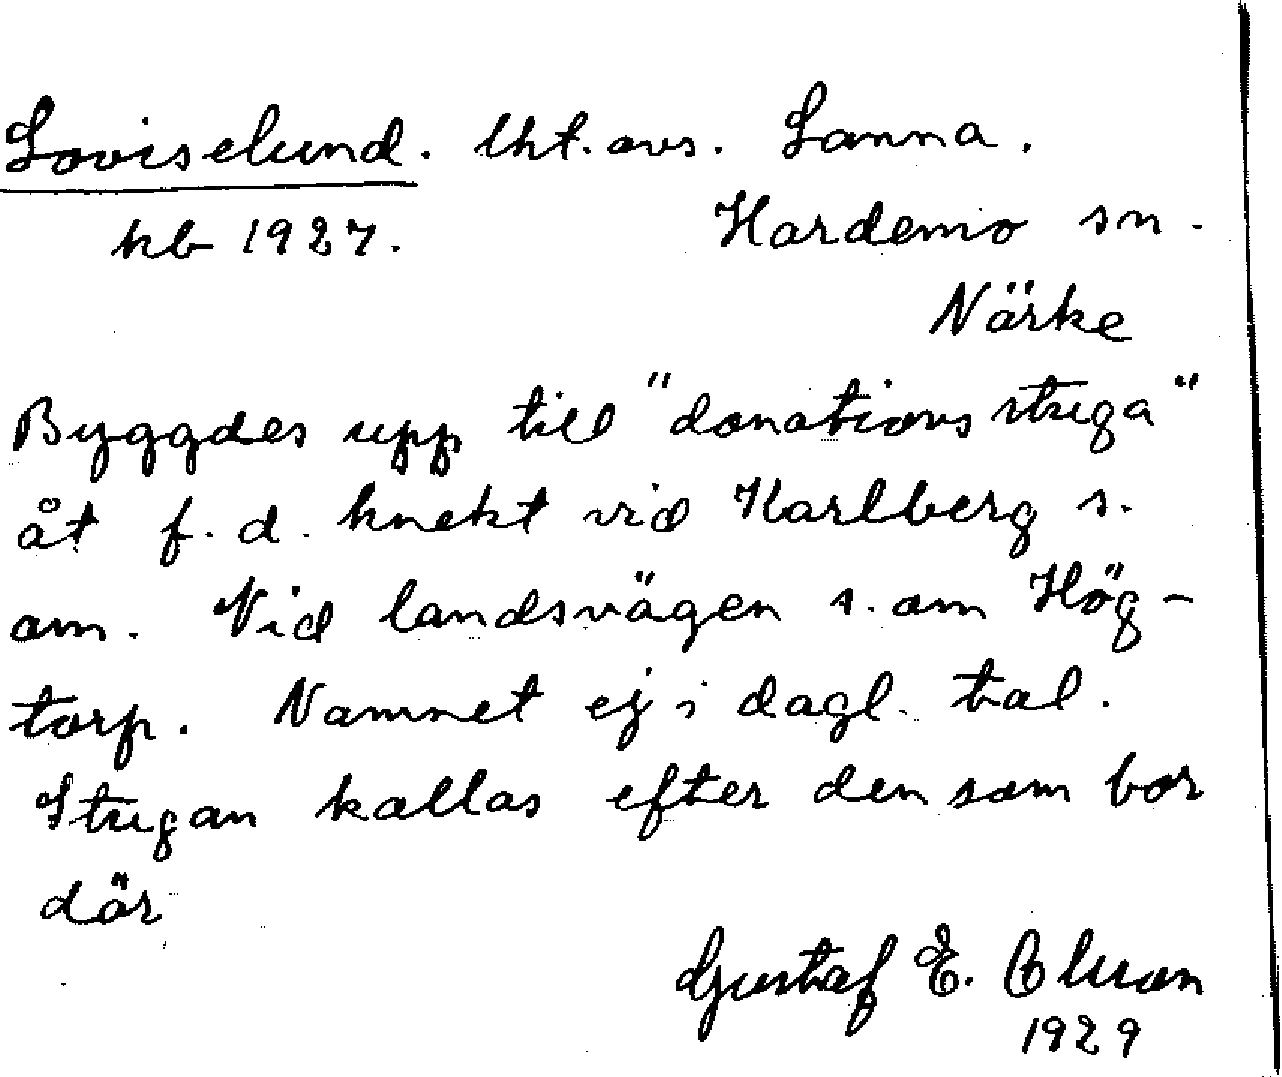 Loviselund. lht. avs. Lanna.
kb 1927. Hardemo sn.
Närke
Byggdes upp till "donationsstuga"
åt f.d. knekt vid Karlberg s.
om. Vid landsvägen s. om Hög-
torp. Namnet ej i dagl. tal.
Stugan kallas efter den som bor
där
Gustaf E. Olsson
1929